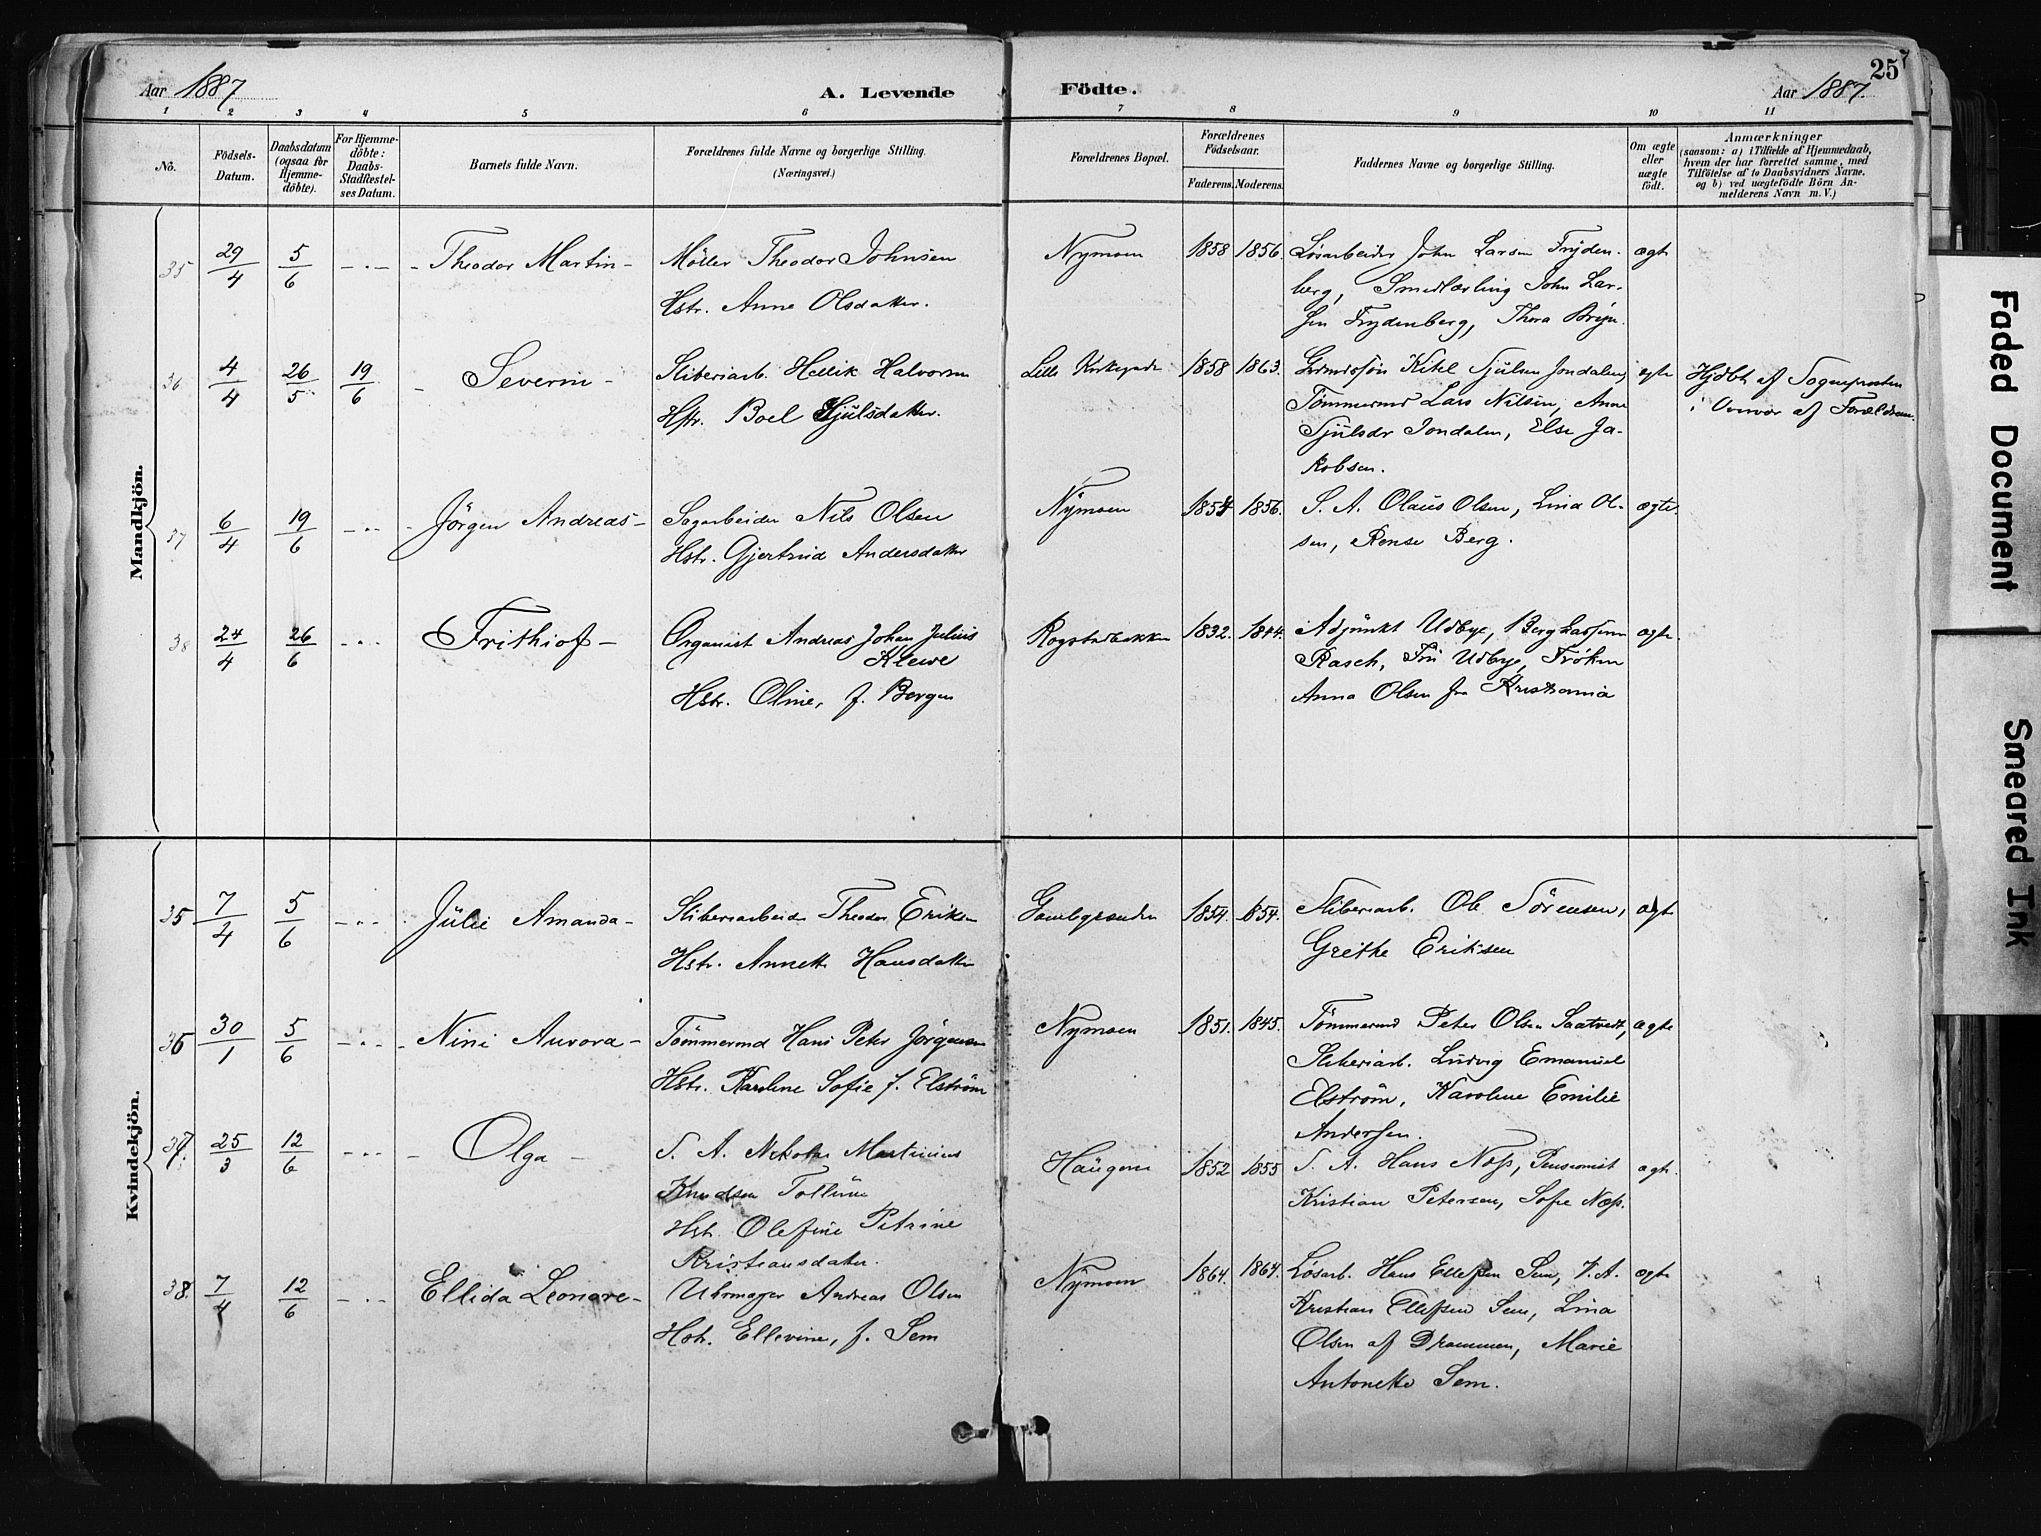 Aar 1887
A. Levende
Födte.
Aar 1887.
25
1 2 3 4 5 6 7 8 9 10 11
No.
Födsels-
Datum.
Daabsdatum
(ogsaa for
Hjemme-
döbte).
For Hjemme-
döbte:
Daabs-
Stadfæstel-
ses Datum.
Barnets fulde Navn.
Forældrenes fulde Navne og borgerlige Stilling.
(Næringsvei.)
Forældrenes Bopæl.
Forældrenes
Födselsaar.
Faderens. Moderens.
Faddernes Navne og borgerlige Stilling.
Om ægte
eller
uægte
födt.
Anmærkninger
(saasom: a) i Tilfælde af Hjemmedaab,
hvem der har forrettet samme, med
Tilföielse af to Daabsvidners Navne,
og b) ved uægtefödte Börn An-
melderens Navn m. V.)
Mandkjön.
35 29/4 5/6 Theodor Martin Möller Theodor Johnsen Nymoen 1858 1856. Løsarbeider John Larsen Fryden- ægte
Hstr. Anne Olsdatter. berg, Smedlærling John Lar-
sen Frydenberg, Thora Bryn.
36 4/4 26/5 19/6 Severin Sliberiarb. Hellik Halvorsen Lille Kirkegade 1858 1863. Kitel Sjulsen Jondalen, ægte Hjdbt. af Sognepresten
Hstr. Boel Sjulsdatter. Tömmermd Lars Nilsen, Anne i Overvær af Forældrene
Sjulsdr Jondalen, Else Ja-
kobsen.
37 6/4 19/6 Jörgen Andreas Sagarbeider Nils Olsen Nymoen 1854 1856. S. A. Olaus Olsen, Lina Ol- ægte.
Hstr. Gjertrud Andersdatter sen, Rense Berg.
38 24/4 26/6 Frithiof Organist Andreas Johan Julius Rogstadbakken 1832. 1844. Adjunkt Udbye, ægte
Klewe Rasch, Fru Udbye, Fröken
Hstr. Oline, f. Bergan Anna Olsen fra Kristiania
Kvindekjön.
35 7/4 5/6 Julie Amanda Sliberiarbeider Theodor Eriksen Gamlegrænden 1854. 1854. Sliberiarb. Ole Sörensen, ægte
Hstr. Annette Hansdatter Grethe Eriksen
36 30/1 5/6 Nini Aurora Tömmermd Hans Peter Jörgensen Nymoen 1851. 1845. Tömmermd Peter Olsen Saatvedt, ægte
Hstr. Karoline Sofie f. Elström Sliberiarb. Ludvig Emanuel
Elström, Karoline Emilie
Andersen.
37. 25/3 12/6 Olga S. A. Nikolai Martinius Haugene 1852 1855 S. A. Hans Næss, Pensionist ægte
Knudsen Tollum Kristian Petersen, Sofie Næss.
Hstr. Olefine Petrine
Kristiansdatter.
38. 7/4 12/6 Ellida Leonore Uhrmager Andreas Olsen Nymoen 1864. 1864. Løsarb. Hans Ellefsen Sem, V. A. ægte
Hstr. Ellevine, f. Sem Kristian Ellefsen Sem, Lina
Olsen af Drammen, Marie
Antonette Sem.
Faded Document
Smeared Ink